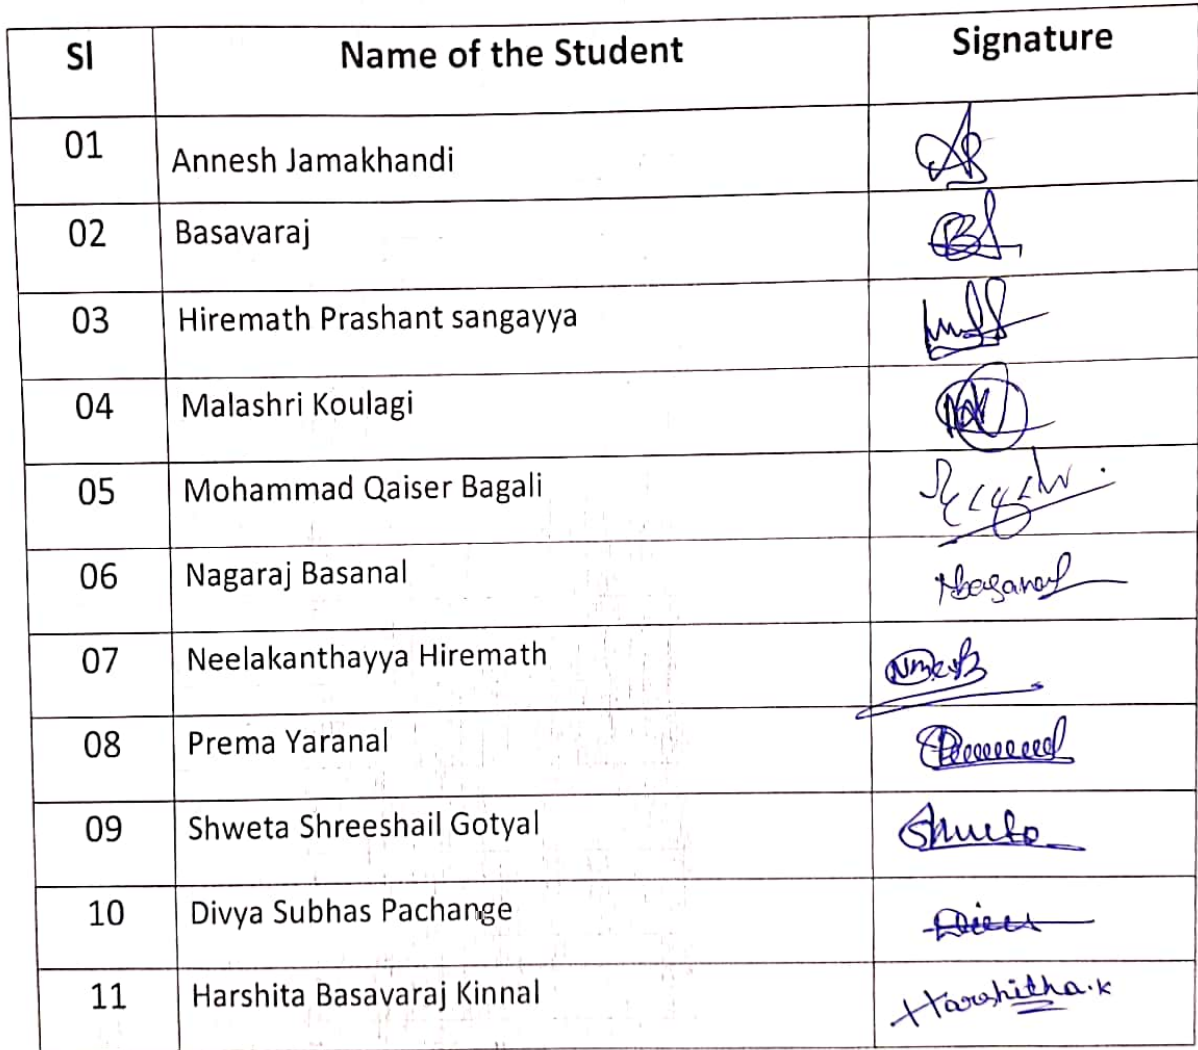 Sl Name of the Student Signature
01 Annesh Jamakhandi
02 Basavaraj
03 Hiremath Prashant sangayya
04 Malashri Koulagi
05 Mohammad Qaiser Bagali
06 Nagaraj Basanal Nbasanal
07 Neelakanthayya Hiremath
08 Prema Yaranal
09 Shweta Shreeshail Gotyal Shweta
10 Divya Subhas Pachange
11 Harshita Basavaraj Kinnal Harshitha.K